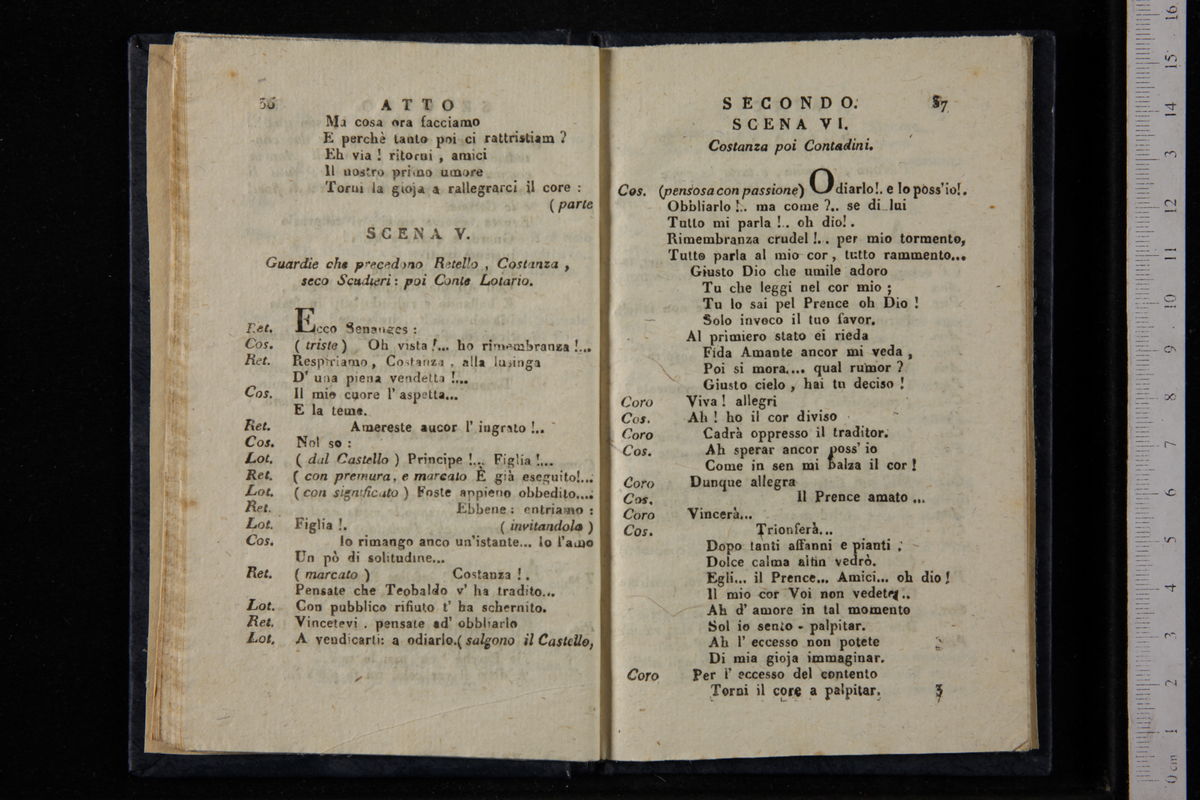 36
ATTO
Ma cosa ora facciamo
E perchè tanto poi ci rattristiam ?
Eh via ! ritorni , amici
Il nostro primo umore
Torni la gioja a rallegrarci il core :
( parte
SCENA V.
Guardie che precedono Retello , Costanza ,
seco Scudieri : poi Conte Lotario.
Ret. Ecco Senanges :
Cos. ( triste ) Oh vista !... ho rimembranza !...
Ret. Respiriamo , Costanza , alla lusinga
D' una piena vendetta !...
Cos. Il mio cuore l' aspetta...
E la teme.
Ret. Amereste aucor l' ingrato !..
Cos. Nol so :
Lot. ( dal Castello ) Principe !... Figlia !...
Ret. ( con premura, e marcato È già eseguito!...
Lot. ( con significato ) Foste appieno obbedito....
Ret. Ebbene : entriamo :
Lot. Figlia !. ( invitandola )
Cos. Io rimango anco un'istante... Io l'amo
Un pò di solitudine...
Ret. ( marcato ) Costanza ! .
Pensate che Teobaldo v' ha tradito...
Lot. Con pubblico rifiuto t' ha schernito.
Ret. Vincetevi . pensate ad' obbliarlo
Lot. A vendicarti: a odiarlo.( salgono il Castello,
SECONDO.
37
SCENA VI.
Costanza poi Contadini.
Cos. (pensosa con passione) Odiarlo!. e lo poss'io!.
Obbliarlo !.. ma come ?.. se di lui
Tutto mi parla !.. oh dio! .
Rimembranza crudel !. . per mio tormento,
Tutto parla al mio cor , tutto rammento...
Giusto Dio che umile adoro
Tu che leggi nel cor mio ;
Tu lo sai pel Prence oh Dio !
Solo invoco il tuo favor.
Al primiero stato ei rieda
Fida Amante ancor mi veda ,
Poi si mora.... qual rumor ?
Giusto cielo , hai tu deciso !
Coro Viva ! allegri
Cos. Ah ! ho il cor diviso
Coro Cadrà oppresso il traditor.
Cos. Ah sperar ancor poss' io
Come in sen mi balza il cor !
Coro Dunque allegra
Cos. Il Prence amato ...
Coro Vincerà...
Cos. Trionferà...
Dopo tanti affanni e pianti ;
Dolce calma alfin vedrò.
Egli... il Prence... Amici... oh dio !
Il mio cor Voi non vedete..
Ah d' amore in tal momento
Sol io sento - palpitar.
Ah l' eccesso non potete
Di mia gioja immaginar.
Coro Per l' eccesso del contento
Torni il core a palpitar.
3
0 cm 1 2 3 4 5 6 7 8 9 10 11 12 13 14 15 16